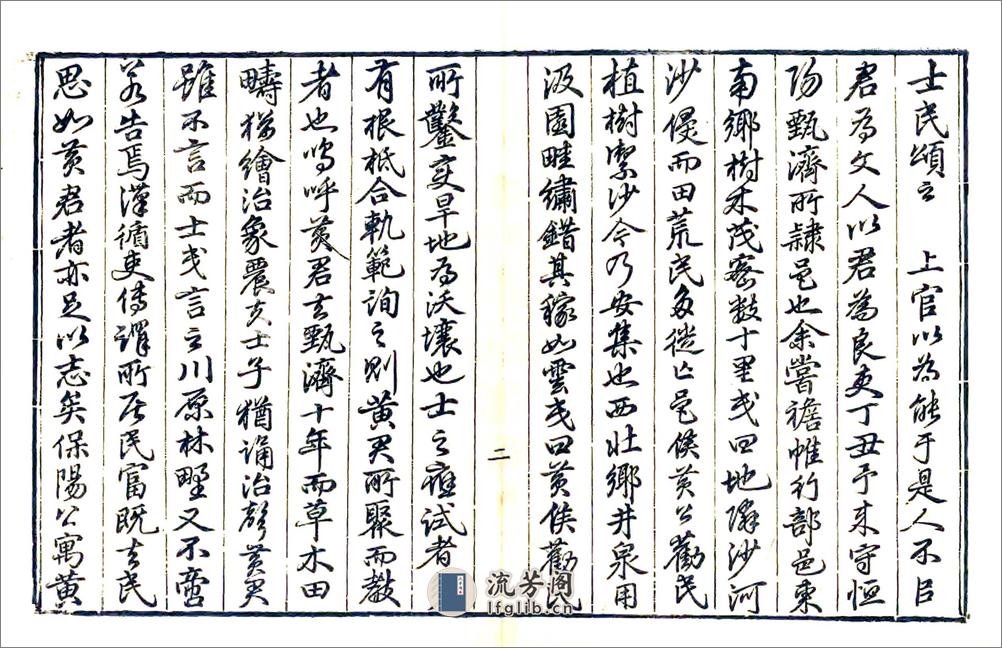 士民頌之　上官以為能于是人不目
君為文人以君為良吏丁丑予来守恒
陽甄濟所隸邑也余嘗襜帷行部邑東
南鄉樹禾茂密数十里民曰地隣沙河
沙侵而田荒民多徙亡邑侯黄公勸民
植樹禦沙今乃安集也西北鄉井泉用
汲園畦繡錯其稼如雲民曰黄侯勸民
二
所鑿变旱地為沃壤也士之應試者
有根柢合軌範詢之則黄君所聚而教
者也嗚呼黄君去甄濟十年而草木田
疇猶繪治象農夫士子猶誦治聲黄君
雖不言而士民言之川原林野又不啻
若告焉漢循吏傳謂所居民富既去民
思如黄君者亦足以志矣保陽公寓黄
流芳阁
lfglib.cn